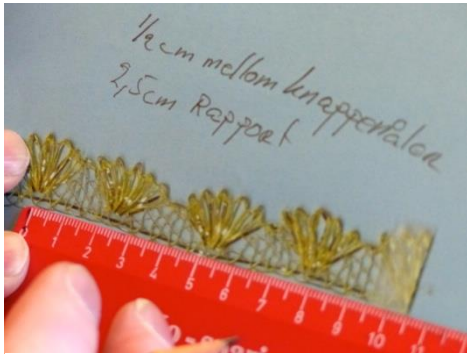 1/2 cm mellom knappenålan
2,5cm Rapport
0 1 2 3 4 5 6 7 8 9 10 11